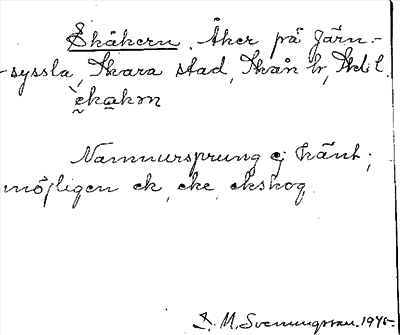 Ekåkern. Åker på Järn-
syssla, Skara stad, Skån hr, Sk. l.
èkakrn
Namnursprung ej känt;
möjligen ek, eke, ekskog.
I. M. Svenungsson. 1945.